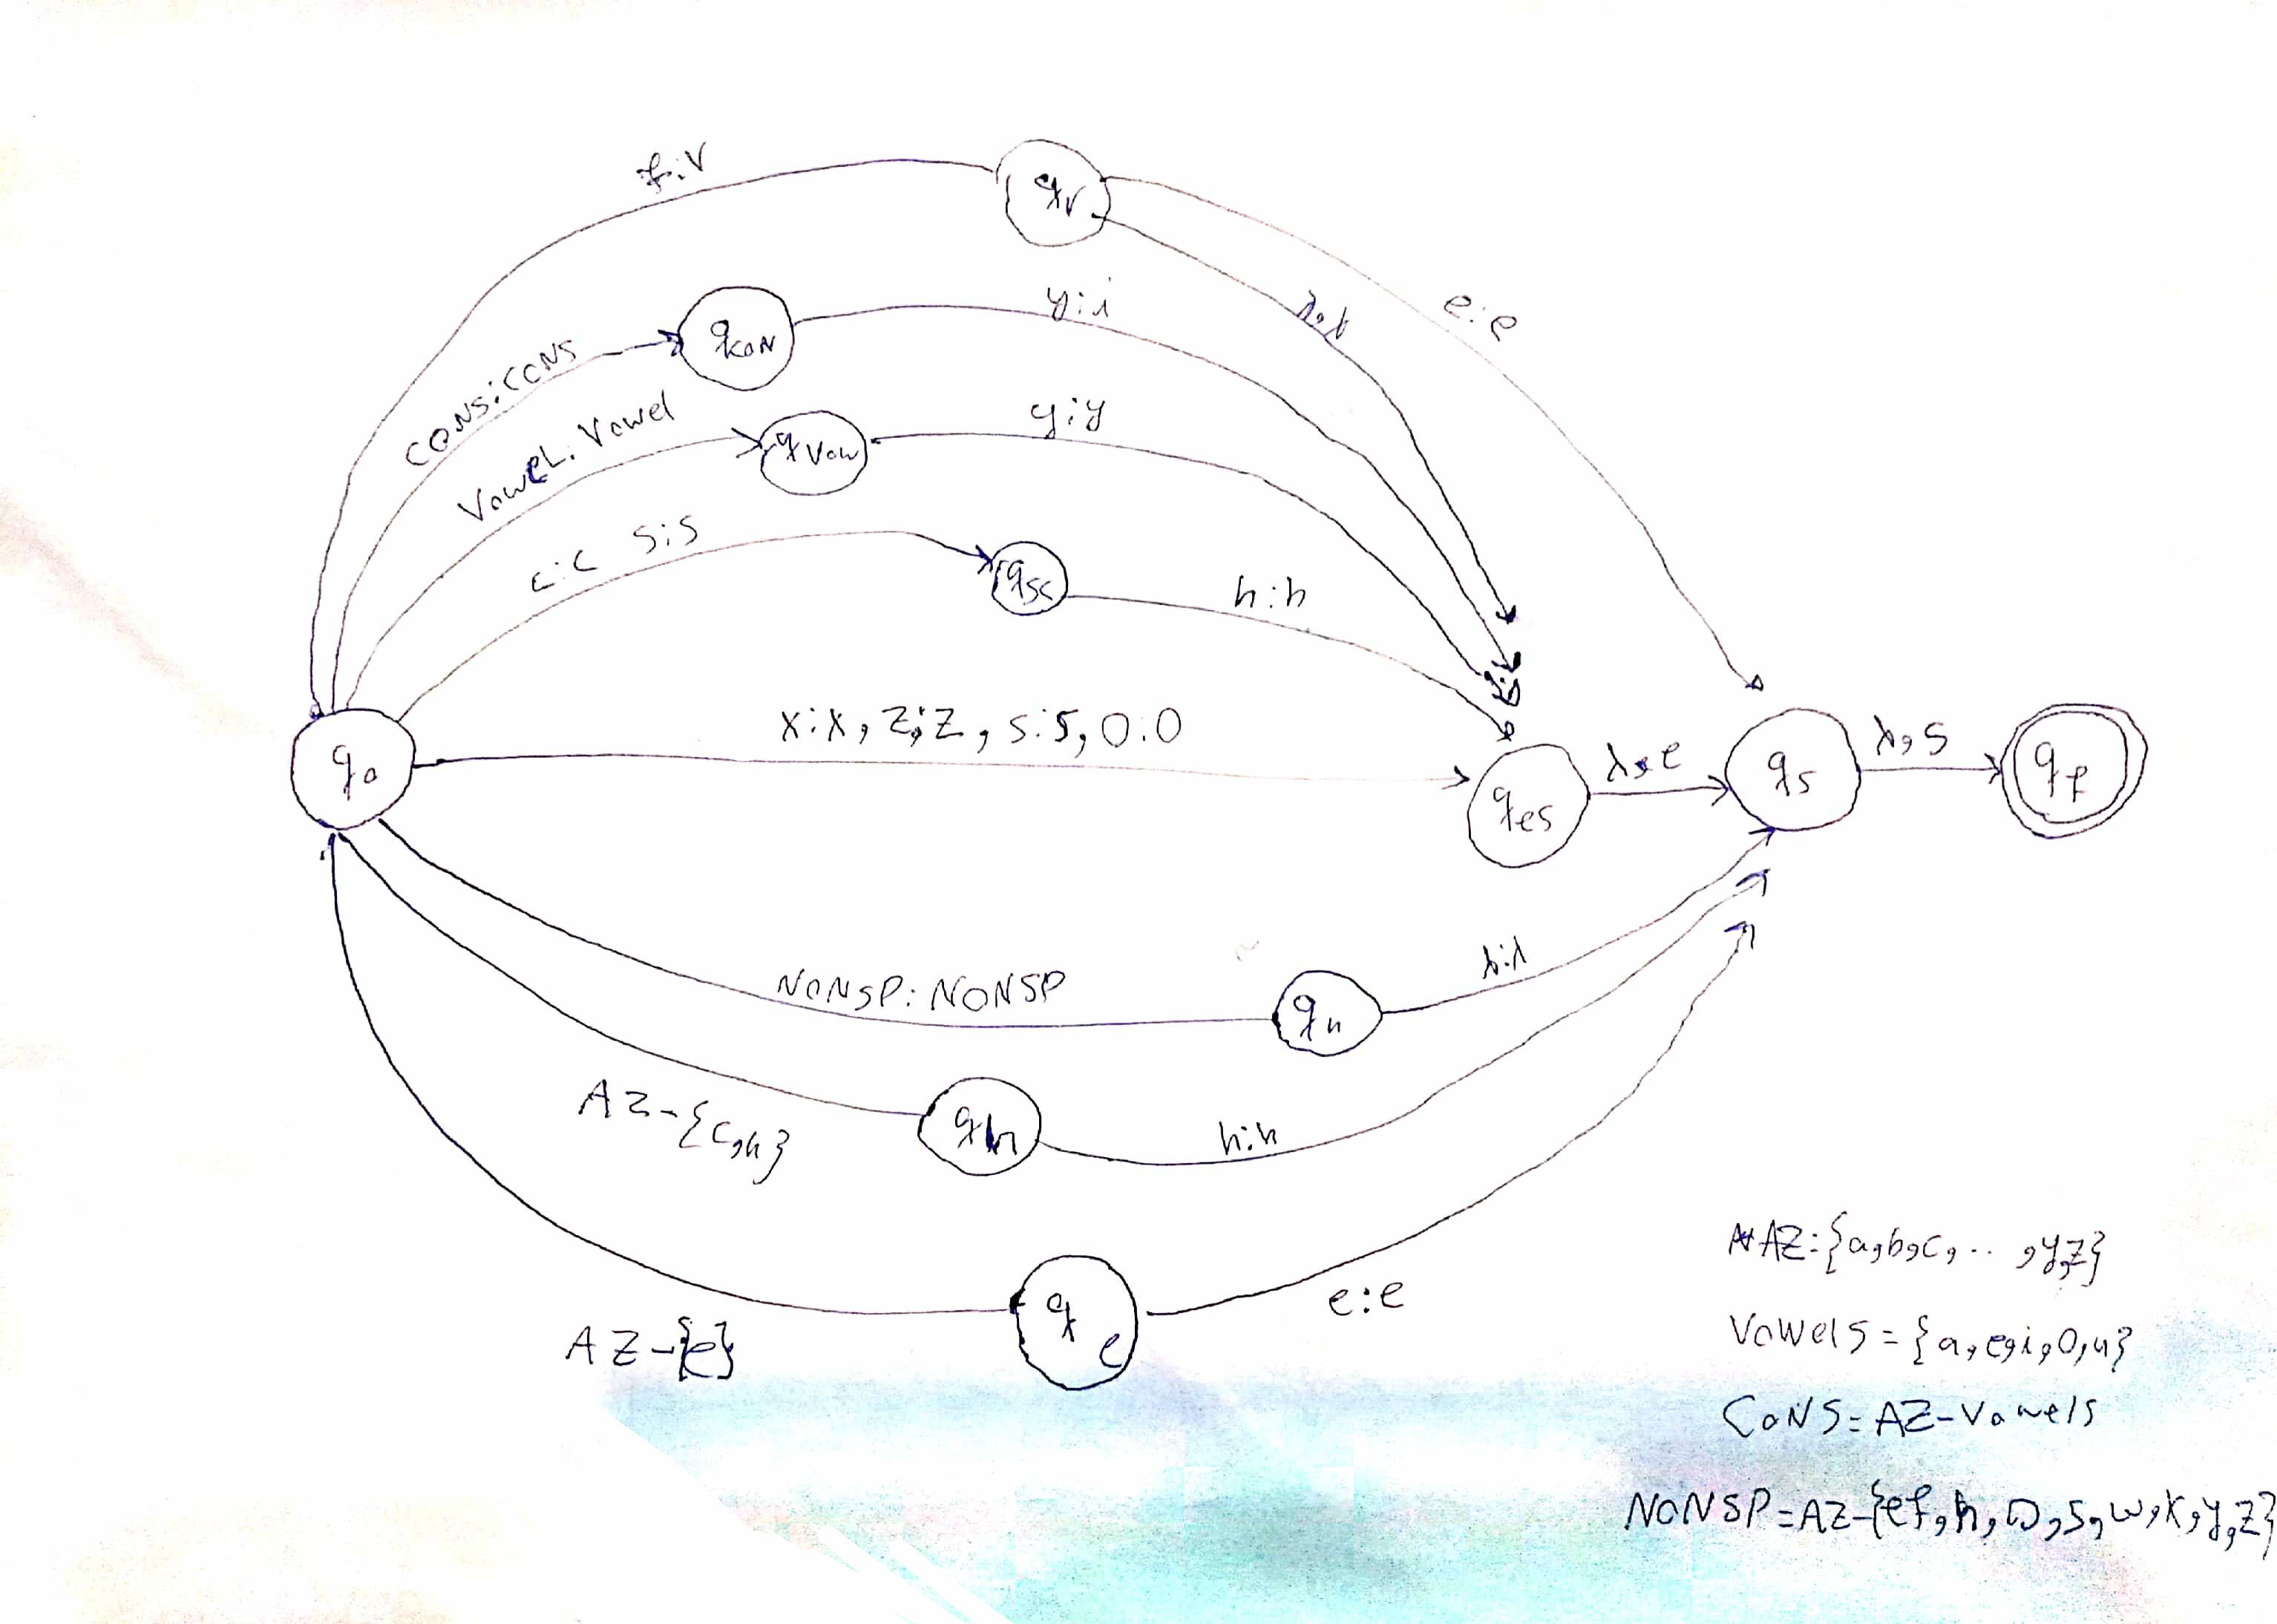 f:v
q_v
y:i
e:e
CONS:CONS
q_KON
Vowel. Vowel
q_Vow
y:y
c:c s:s
q_sc
h:h
x:x, z:z, s:s, O:O
q_0
q_es
λ,e
q_s
λ,s
q_f
NONSP: NONSP
q_n
λ:λ
AZ-{c,h}
q_h
h:h
AZ-{e}
q_e
e:e
AZ:{a,b,c, .. ,y,z}
Vowels = {a,e,i,O,u}
CONS = AZ-Vowels
NONSP=AZ-{ef,h,O,s,w,x,y,z}